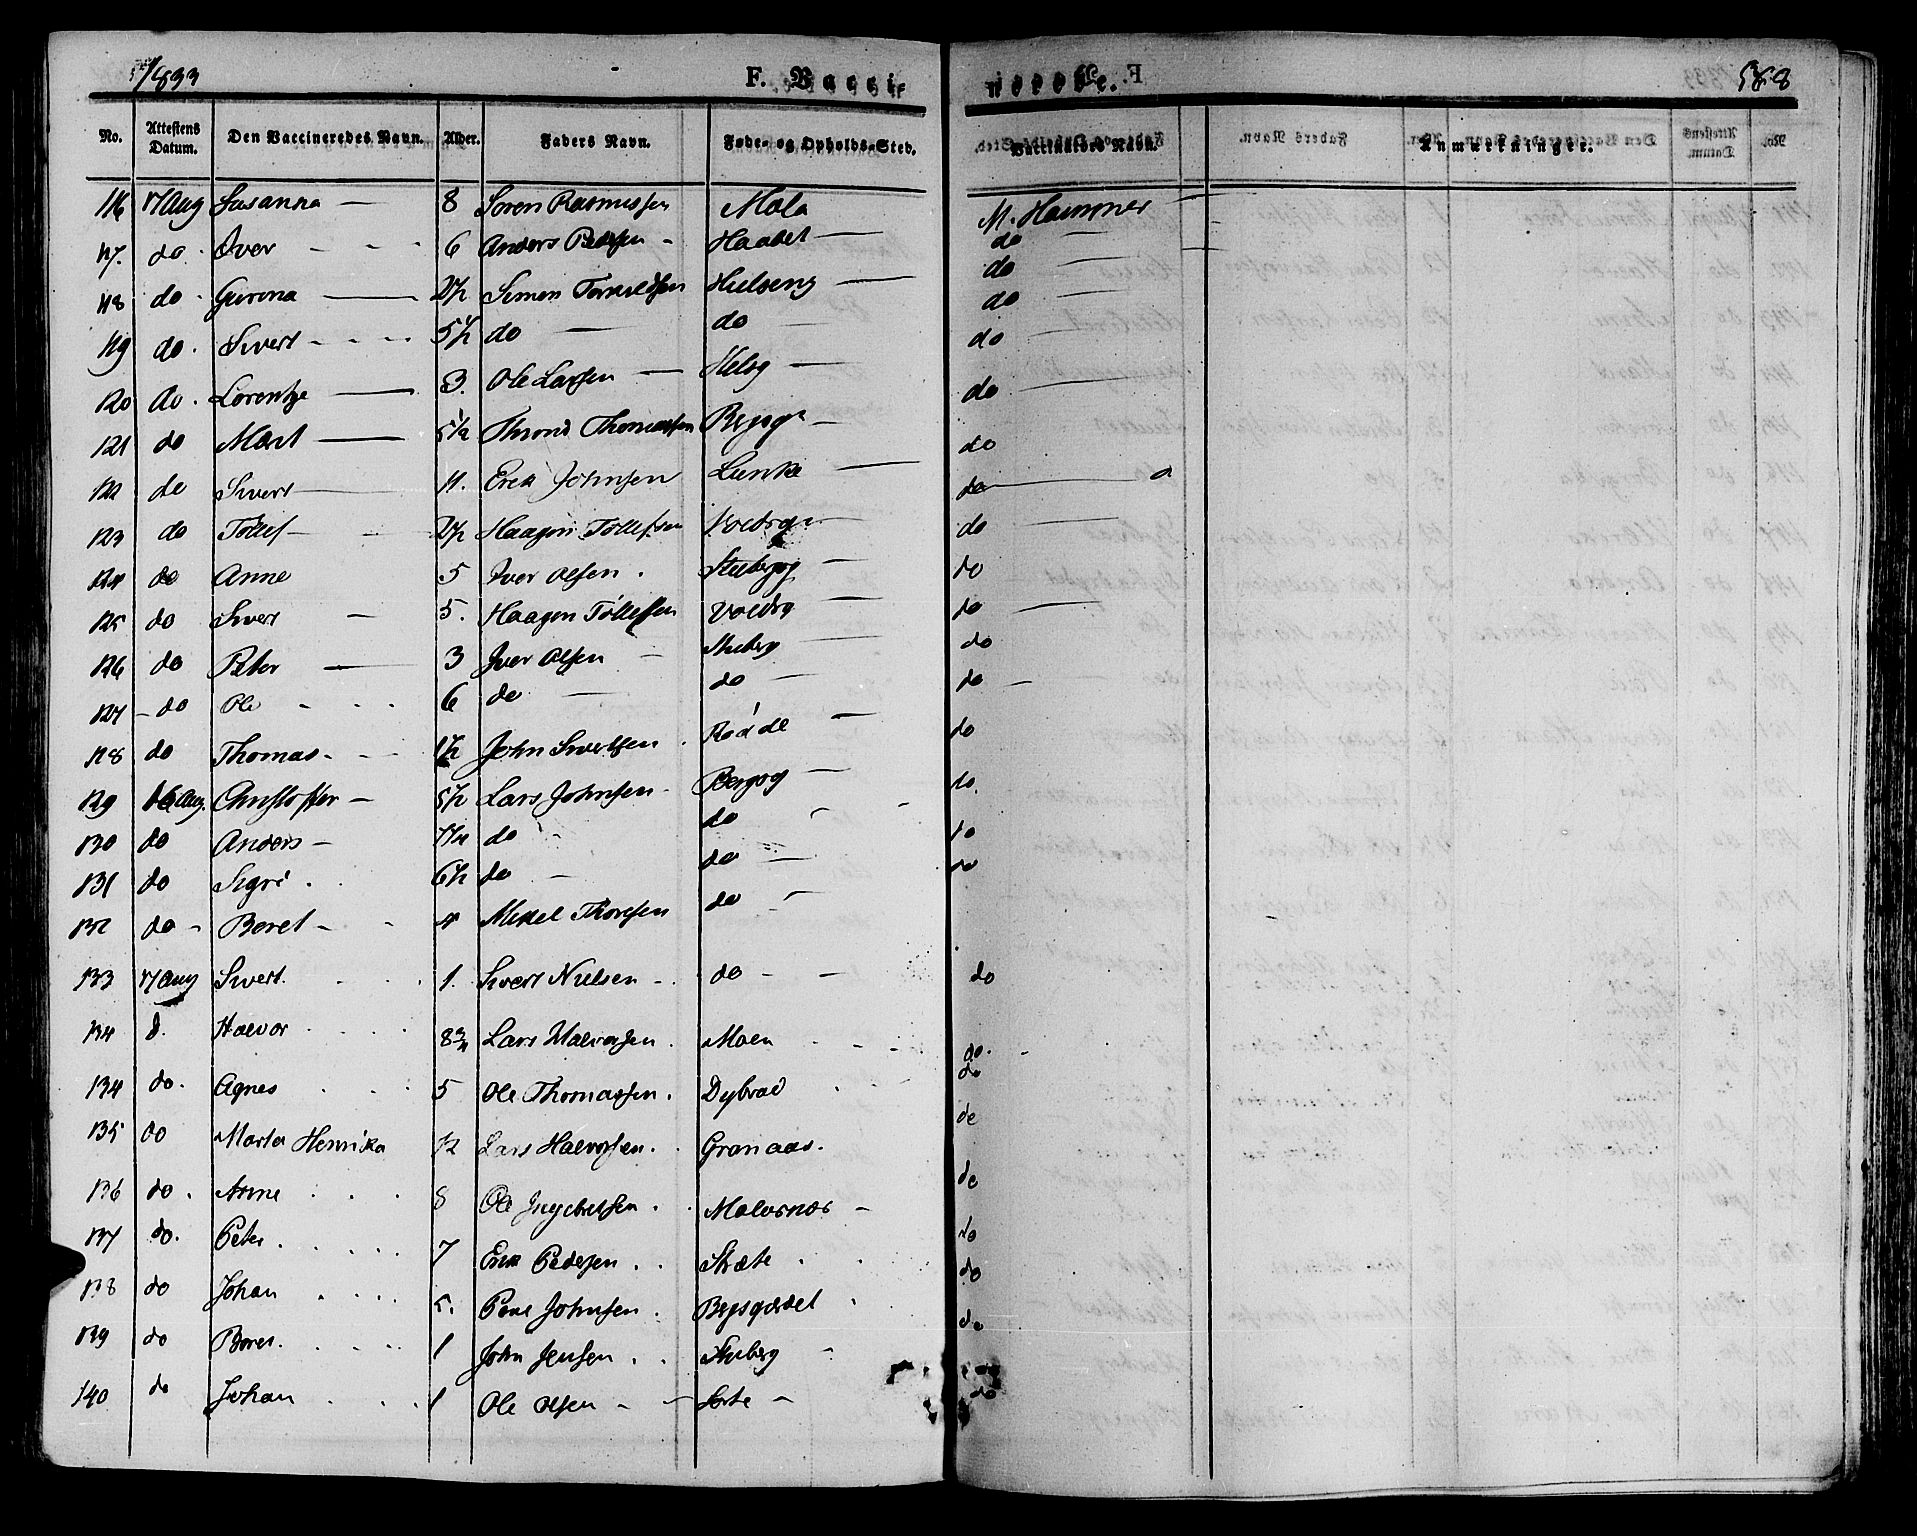 1833 F. Vacci- nerede. 588
No. Attestens Datum. Den Vaccineredes Navn. Alder. Faders Navn. Føde- og Opholds-Sted. Vaccinatørs Navn. Anmærkninger.
116 17 Aug Susanna — 8 Søren Rasmussen Mola M. Hammer
117. do Iver 6 Anders Pedersen Haabet do
118 do Gurina 2 1/2 Simon Hulseng do
119 do Sivert 5 1/2 do do do
120 do Lorentze 3. Ole Larsen Helsg do
121 do Marit 5 1/2 Trond Thomassen do
122 do Sivert 11. Erik Johnsen Lunke do
123 do Tollef 2 1/2 Haagen Tollefsen do
124 do Anne 5 Iver Olsen do
125 do Sivert 5. Haagen Tollefsen Voldsg do
126 do Peter 3 Iver Olsen Stuberg do
127 do Ole 6 do do do
128 do Thomas 1 1/2 John Sivertsen do
129 16 Aug. Christoffer 5 1/2 Lars Johnsen do
130 do Anders do do do
131 do Sigri 6 1/2 do do do
132 do Beret 4 Mikel Thoresen do
133 17 Aug Sivert 1. Sivert Nielsen do do
134 d. Halvor 8 3/4 Lars Halvorsen Moen do
134 do Agnes 5 Ole Thomassen Dybvad do
135 do Marta Henrika 12 Lars Halvorsen Granaas do
136 do Anne 8 Ole Ingebretsen do
137 do Peter 7 Erik Pedersen do
138 do Johan 5. Johnsen do
139 do Beret 1 John Jensen Stuberg do
140 do Johan 1 Ole Olsen do